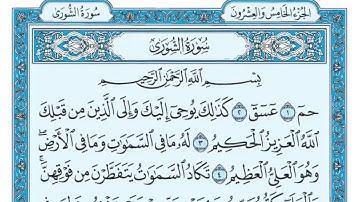 الجزء الخامس والعشرون
سورة الشورى
سُورَةُ الشُّورَىٰ
بِسْمِ اللَّهِ الرَّحْمَٰنِ الرَّحِيمِ
حمٓ ۝١ عٓسٓقٓ ۝٢ كَذَٰلِكَ يُوحِىٓ إِلَيْكَ وَإِلَى ٱلَّذِينَ مِن قَبْلِكَ
ٱللَّهُ ٱلْعَزِيزُ ٱلْحَكِيمُ ۝٣ لَهُۥ مَا فِى ٱلسَّمَٰوَٰتِ وَمَا فِى ٱلْأَرْضِ ۖ
وَهُوَ ٱلْعَلِىُّ ٱلْعَظِيمُ ۝٤ تَكَادُ ٱلسَّمَٰوَٰتُ يَتَفَطَّرْنَ مِن فَوْقِهِنَّ ۚ